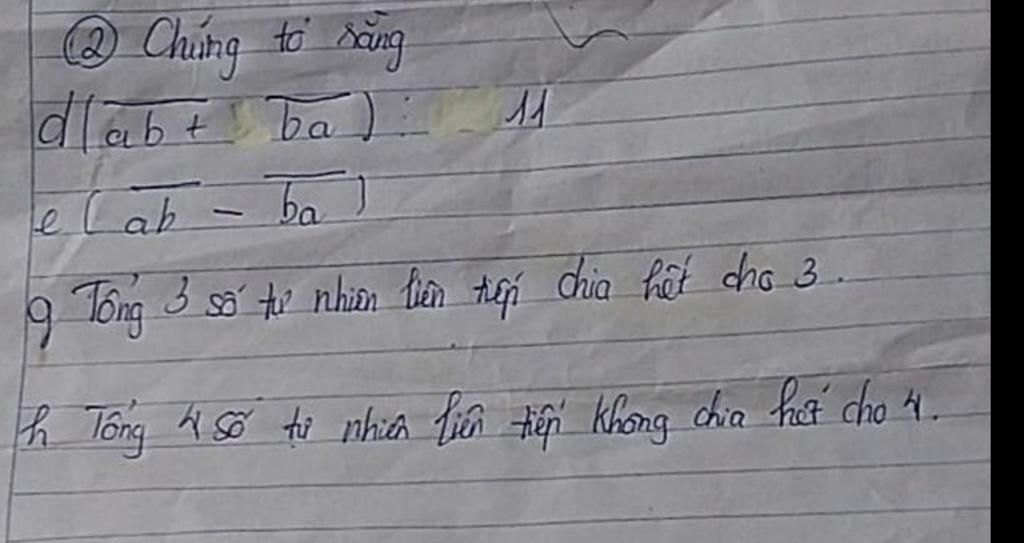 ② Chứng tỏ rằng
d ( ab + ba ) : 11
e ( ab - ba )
g Tổng 3 số tự nhiên liên tiếp chia hết cho 3.
h Tổng 4 số tự nhiên liên tiếp không chia hết cho 4.